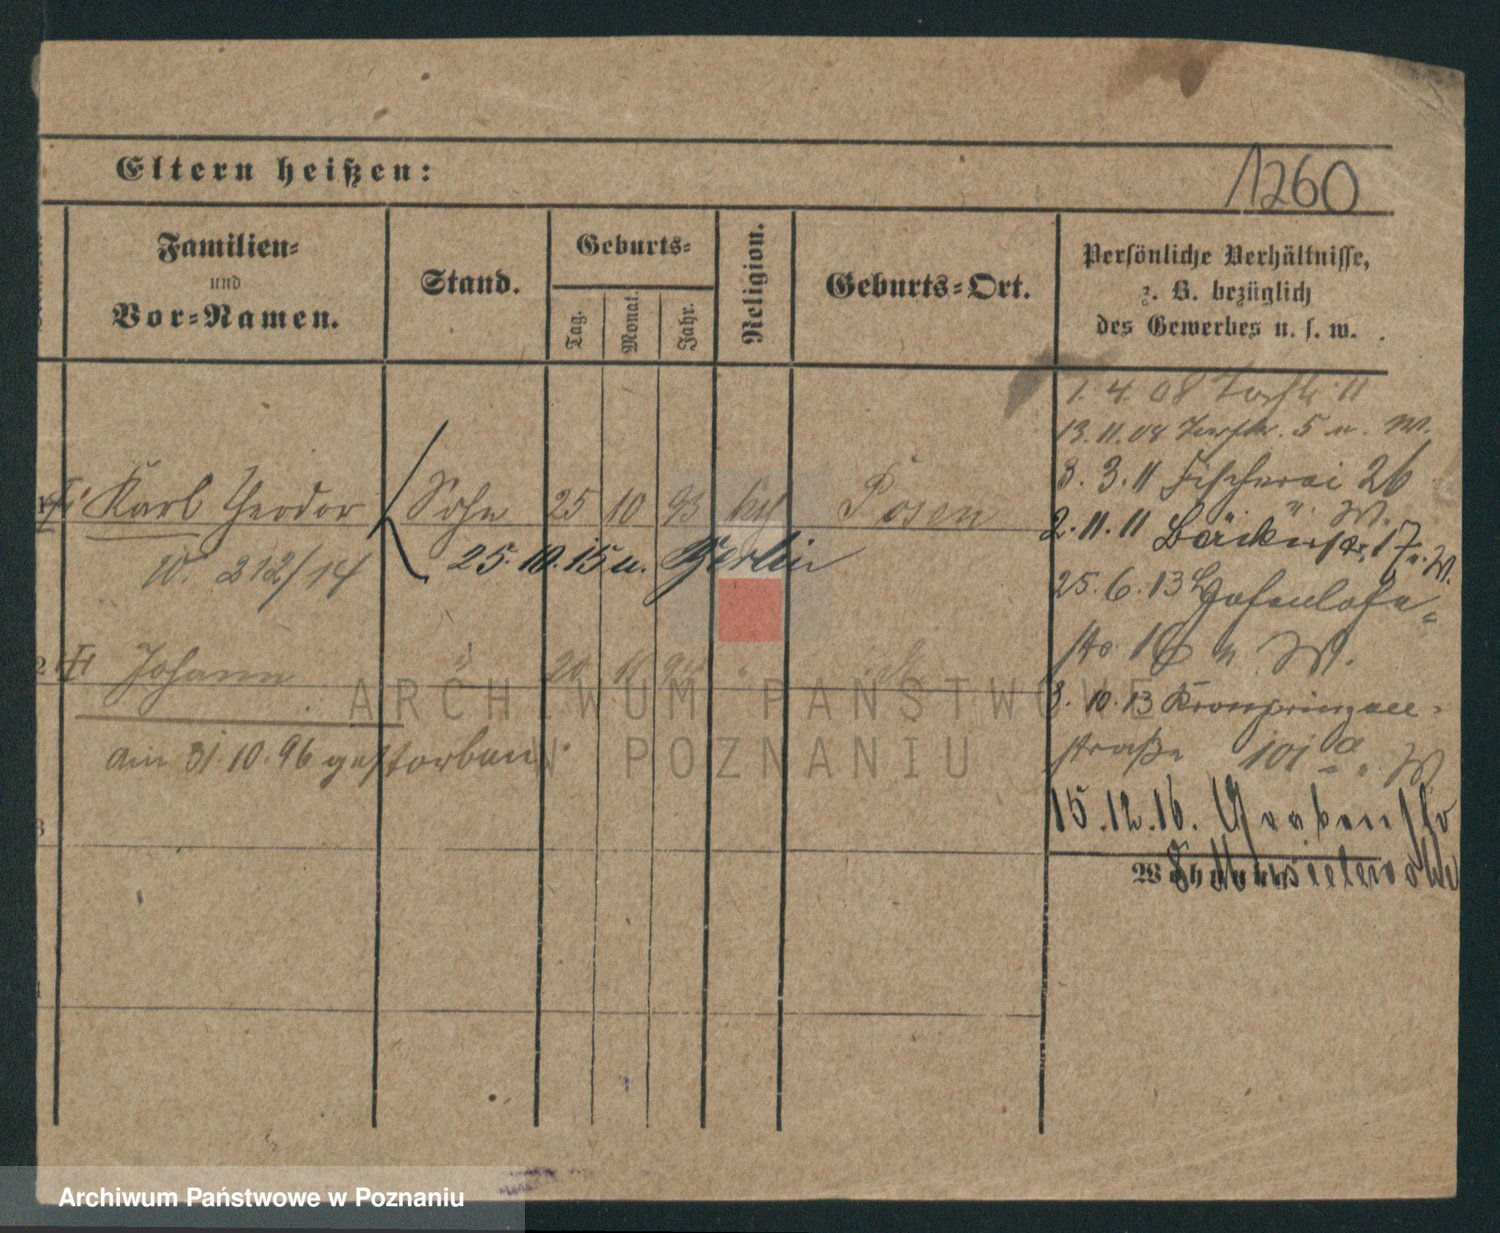 1260
Eltern heißen:
Familien-
und
Vor-Namen.
Stand.
Geburts-
Tag.
Monat.
Jahr.
Religion.
Geburts-Ort.
Persönliche Verhältnisse,
z. B. bezüglich
des Gewerbes u. s. w.
1. 4. 08 11
13. 11. 08 5 u. W.
3. 3. 11 Fischerei 26
" W.
1 Karl Theodor Sohn 25 10 93 kth Posen
2. 11. 11 Bäckerstr. 17 u. W.
W. 212/14
25. 10. 15 u. Berlin
25. 6. 13 Hohenlohe-
str. u. W.
2 Johann " 20 11 "
3. 10. 13 Kronprinzen-
straße 101 a W
am 31. 10. 96 gestorben
15. 12. 16. Grabenstr
3
8
Wohnung
4
ARCHIWUM PAŃSTWOWE
W POZNANIU
Archiwum Państwowe w Poznaniu